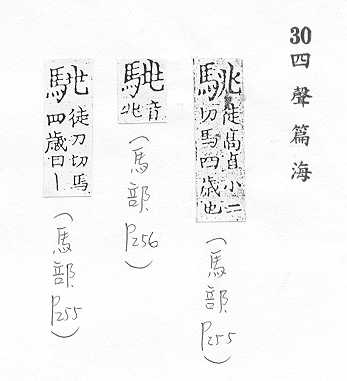 30 四聲篇海
駣徒高直小二切馬四歲也
（馬部 P255）
音
（馬部 P256）
徒刀切馬四歲曰丨
（馬部 P255）